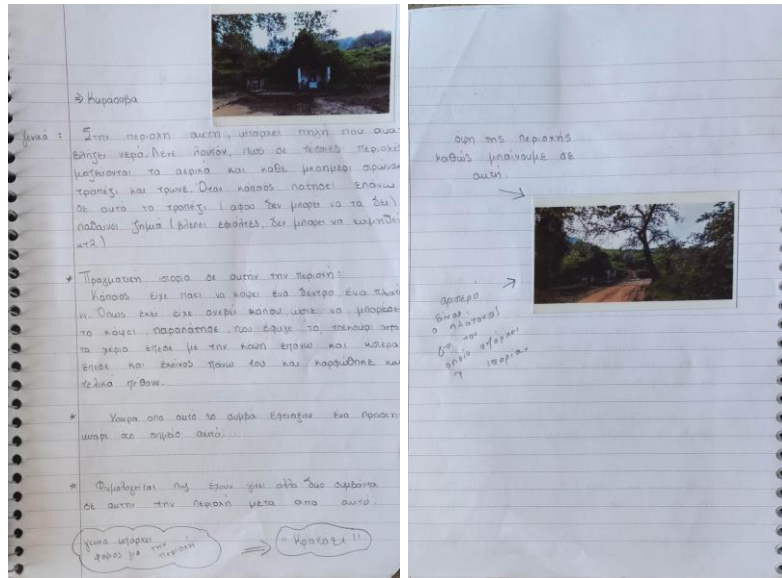 ⇒ Κυρασοβα
Γενικά : Στην περιοχη αυτη, υπάρχει πηγή που ανα
βλήζει νερό. Λενε λοιπόν, πως σε τέτοιες περιοχές
μαζευονται τα αερικά και καθε μεσημερι στρωνουν
τραπέζι και τρώνε. Όταν κάποιος πατησει επάνω
σε αυτο το τραπέζι (αφου δεν μπορει να τα δει)
παθαινει ζημιά (βλεπει εφιαλτες, δεν μπορει να κοιμηθεί
κτλ)
* Πραγματικη ιστορια σε αυτην την περιοχή:
Κάποιος ειχε παει να κοψει ενα δεντρο, ενα πλατα
νι. Όπως εκει ειχε ανεβει κάπου, ωστε να μπορέσει
το κόψει, παραπάτησε, του εφυγε το τσεκουρι απο
τα χερια επεσε με την κοψη επανω και υστερα
επεσε και εκεινος πανω του και καρφώθηκε και
τελικά πέθανε.
* Υστερα απο αυτό το συμβαν εφτιαξαν ενα προσκυ
νηταρι στο σημείο αυτό.
* Φημολογείται πως έχουν γίνει αλλα δυο συμβάντα
σε αυτην την περιοχή μετα απο αυτό.
γενικα υπάρχει
φοβος για την
περιοχή
⇒
οψη της περιοχής
καθώς μπαίνουμε σε
αυτή.
αριστερά
ειναι
ο πλατανος
για τον
οποίο υπάρχει
η ιστορία.